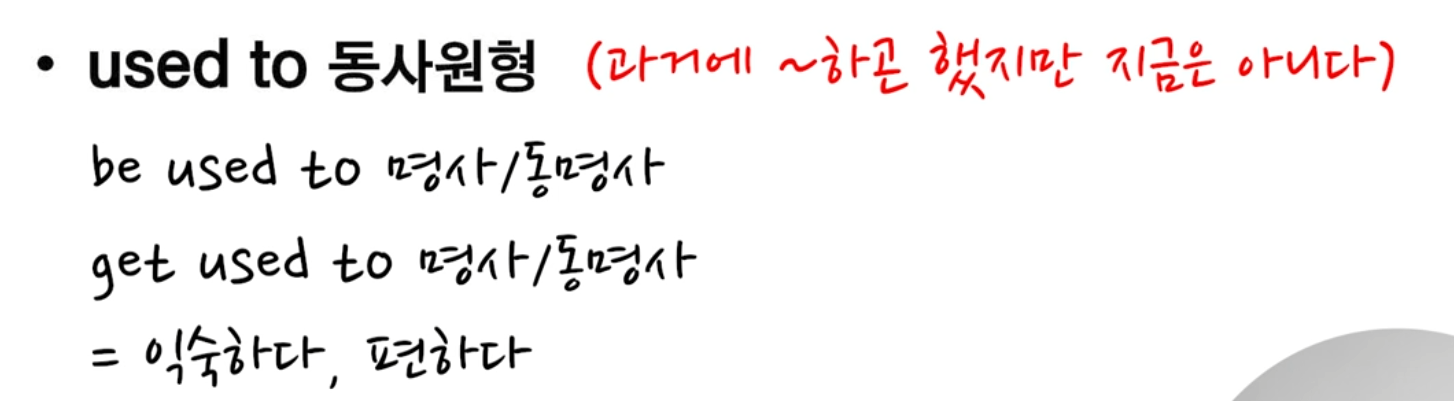 • used to 동사원형 (과거에 ~하곤 했지만 지금은 아니다)
be used to 명사/동명사
get used to 명사/동명사
= 익숙하다, 편하다